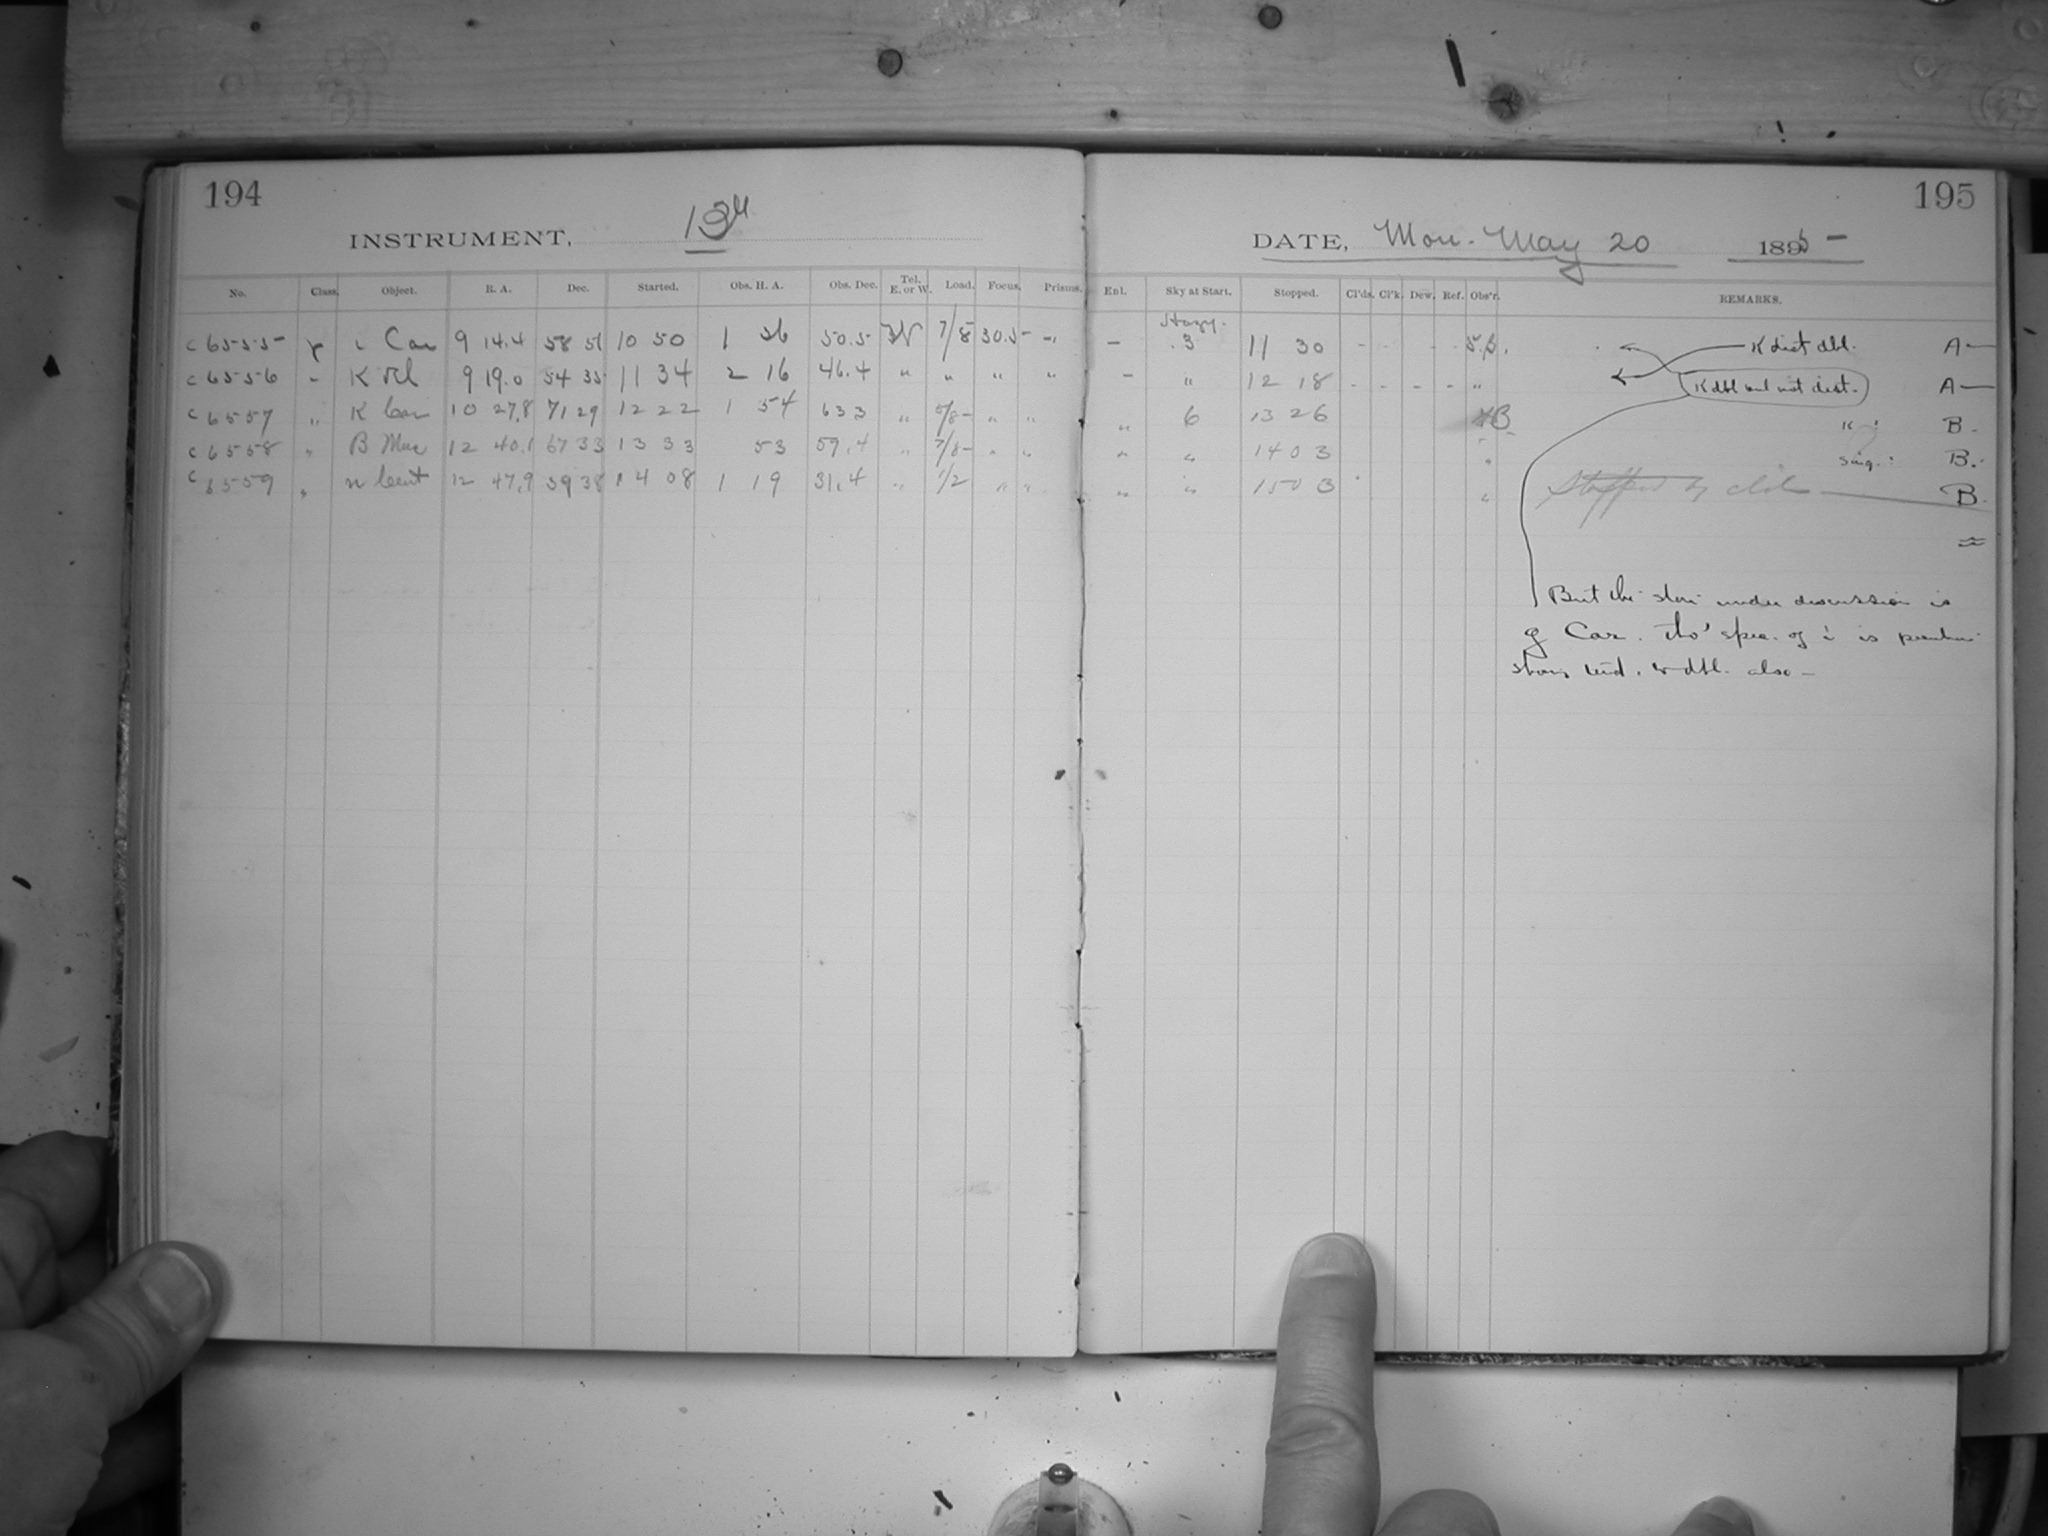 194
INSTRUMENT, 13"
No. Class. Object. R. A. Dec. Started. Obs. H. A. Obs. Dec. Tel. E. or W. Load. Focus. Prisms.
c 6555 γ i Car 9 14.4 58 51 10 50 1 36 50.5 W 7/8 30.5 "
c 6556 " K Vel 9 19.0 54 35 11 34 2 16 46.4 " " " "
c 6557 " K Car 10 27.8 71 29 12 22 1 54 63.3 " 5/8 " "
c 6558 " B Mus 12 40.1 67 33 13 33 53 59.4 " 7/8 " "
c 6559 " n Cent 12 47.9 39 38 14 08 1 19 31.4 " 1/2 " "
195
DATE, Mon. May 20 1895
Enl. Sky at Start. Stopped. Cl'ds. Cl'k. Dew. Ref. Obs'r. REMARKS.
Hazy.
- 3 11 30 - - - - K dist dbl. A
- " 12 18 - - - - " K dbl but not dist. A
" 6 13 26 B K : B.
" " 14 03 " Sing. : B.
" " 15 03 " Stopped by clds B
But the star under discussion is
g Car. tho' spec. of i is peculiar
also